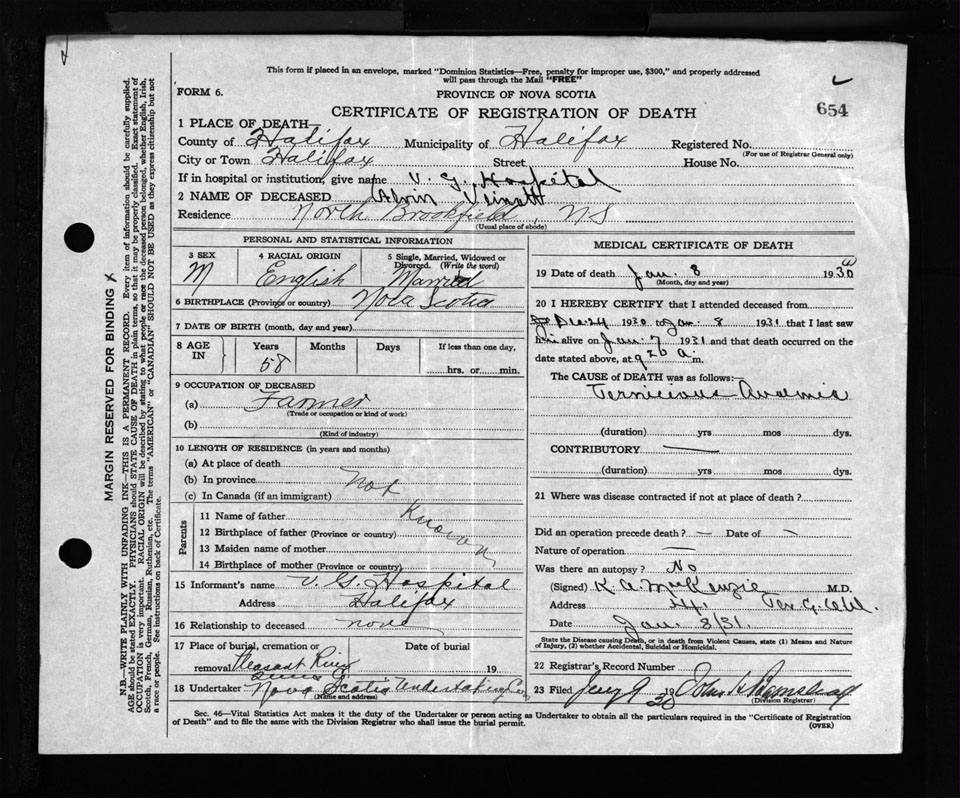 This form if placed in an envelope, marked "Dominion Statistics—Free, penalty for improper use, $300," and properly addressed
will pass through the Mail "FREE"
FORM 6.
PROVINCE OF NOVA SCOTIA
CERTIFICATE OF REGISTRATION OF DEATH
654
1 PLACE OF DEATH—
County of Halifax Municipality of Halifax Registered No.
(For use of Registrar General only)
City or Town Halifax Street House No.
If in hospital or institution, give name V. G. Hospital
2 NAME OF DECEASED Alvin Veinott
Residence North Brookfield, NS
(Usual place of abode)
PERSONAL AND STATISTICAL INFORMATION
3 SEX M
4 RACIAL ORIGIN English
5 Single, Married, Widowed or Divorced. (Write the word) Married
6 BIRTHPLACE (Province or country) Nova Scotia
7 DATE OF BIRTH (month, day and year)
8 AGE IN Years 58 Months Days If less than one day, hrs. or min.
9 OCCUPATION OF DECEASED
(a) Farmer
(Trade or occupation or kind of work)
(b)
(Kind of industry)
10 LENGTH OF RESIDENCE (in years and months)
(a) At place of death
(b) In province Not
(c) In Canada (if an immigrant)
Parents
11 Name of father Known
12 Birthplace of father (Province or country)
13 Maiden name of mother
14 Birthplace of mother (Province or country)
15 Informant's name V. G. Hospital
Address Halifax
16 Relationship to deceased none
17 Place of burial, cremation or removal Pleasant River Date of burial 19
18 Undertaker Nova Scotia Undertaking Co
(Name and address)
MEDICAL CERTIFICATE OF DEATH
19 Date of death Jan. 8 1930
(Month, day and year)
20 I HEREBY CERTIFY that I attended deceased from
Dec 24 1930 to Jan. 8 1931 that I last saw
him alive on Jan. 7 1931 and that death occurred on the
date stated above, at 920 a. m.
The CAUSE of DEATH was as follows:—
Pernicious Anemia
(duration) yrs mos dys.
CONTRIBUTORY —
(duration) yrs mos dys.
21 Where was disease contracted if not at place of death?
Did an operation precede death? — Date of —
Nature of operation —
Was there an autopsy? No
(Signed) K. A. MacKenzie M.D.
Address
Date Jan. 8/31.
State the Disease causing Death, or in death from Violent Causes, state (1) Means and Nature
of Injury, (2) whether Accidental, Suicidal or Homicidal.
22 Registrar's Record Number
23 Filed Jany 9 1930 John
(Division Registrar)
Sec. 46—Vital Statistics Act makes it the duty of the Undertaker or person acting as Undertaker to obtain all the particulars required in the "Certificate of Registration
of Death" and to file the same with the Division Registrar who shall issue the burial permit.
(OVER)
MARGIN RESERVED FOR BINDING X
N.B.—WRITE PLAINLY WITH UNFADING INK—THIS IS A PERMANENT RECORD. Every item of information should be carefully supplied.
AGE should be stated EXACTLY. PHYSICIANS should STATE CAUSE OF DEATH in plain terms, so that it may be properly classified. Exact statement of
OCCUPATION is very important. RACIAL ORIGIN will be described by stating to what people or race the deceased person belonged, whether English, Irish,
Scotch, French, German, Russian, Ruthenian, etc. The terms "AMERICAN" or "CANADIAN" SHOULD NOT BE USED as they express citizenship but not
a race or people. See instructions on back of Certificate.